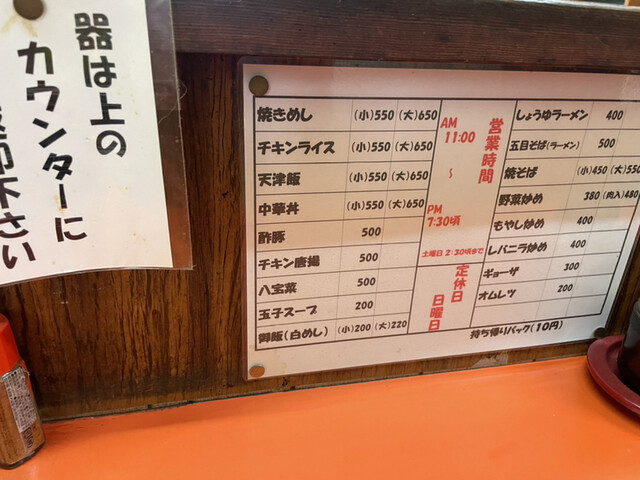 器は上の
カウンターに
下さい
焼きめし (小)550 (大)650
チキンライス (小)550 (大)650
天津飯 (小)550 (大)650
中華丼 (小)550 (大)650
酢豚 500
チキン唐揚 500
八宝菜 500
玉子スープ 200
御飯(白めし) (小)200 (大)220
営業時間
AM
11:00
~
PM
7:30頃
土曜日2:30頃まで
定休日
日曜日
しょうゆラーメン 400
五目そば(ラーメン) 500
焼そば (小)450 (大)550
野菜炒め 380 (肉入)480
もやし炒め 400
レバニラ炒め 400
ギョーザ 300
オムレツ 200
持ち帰りパック(10円)